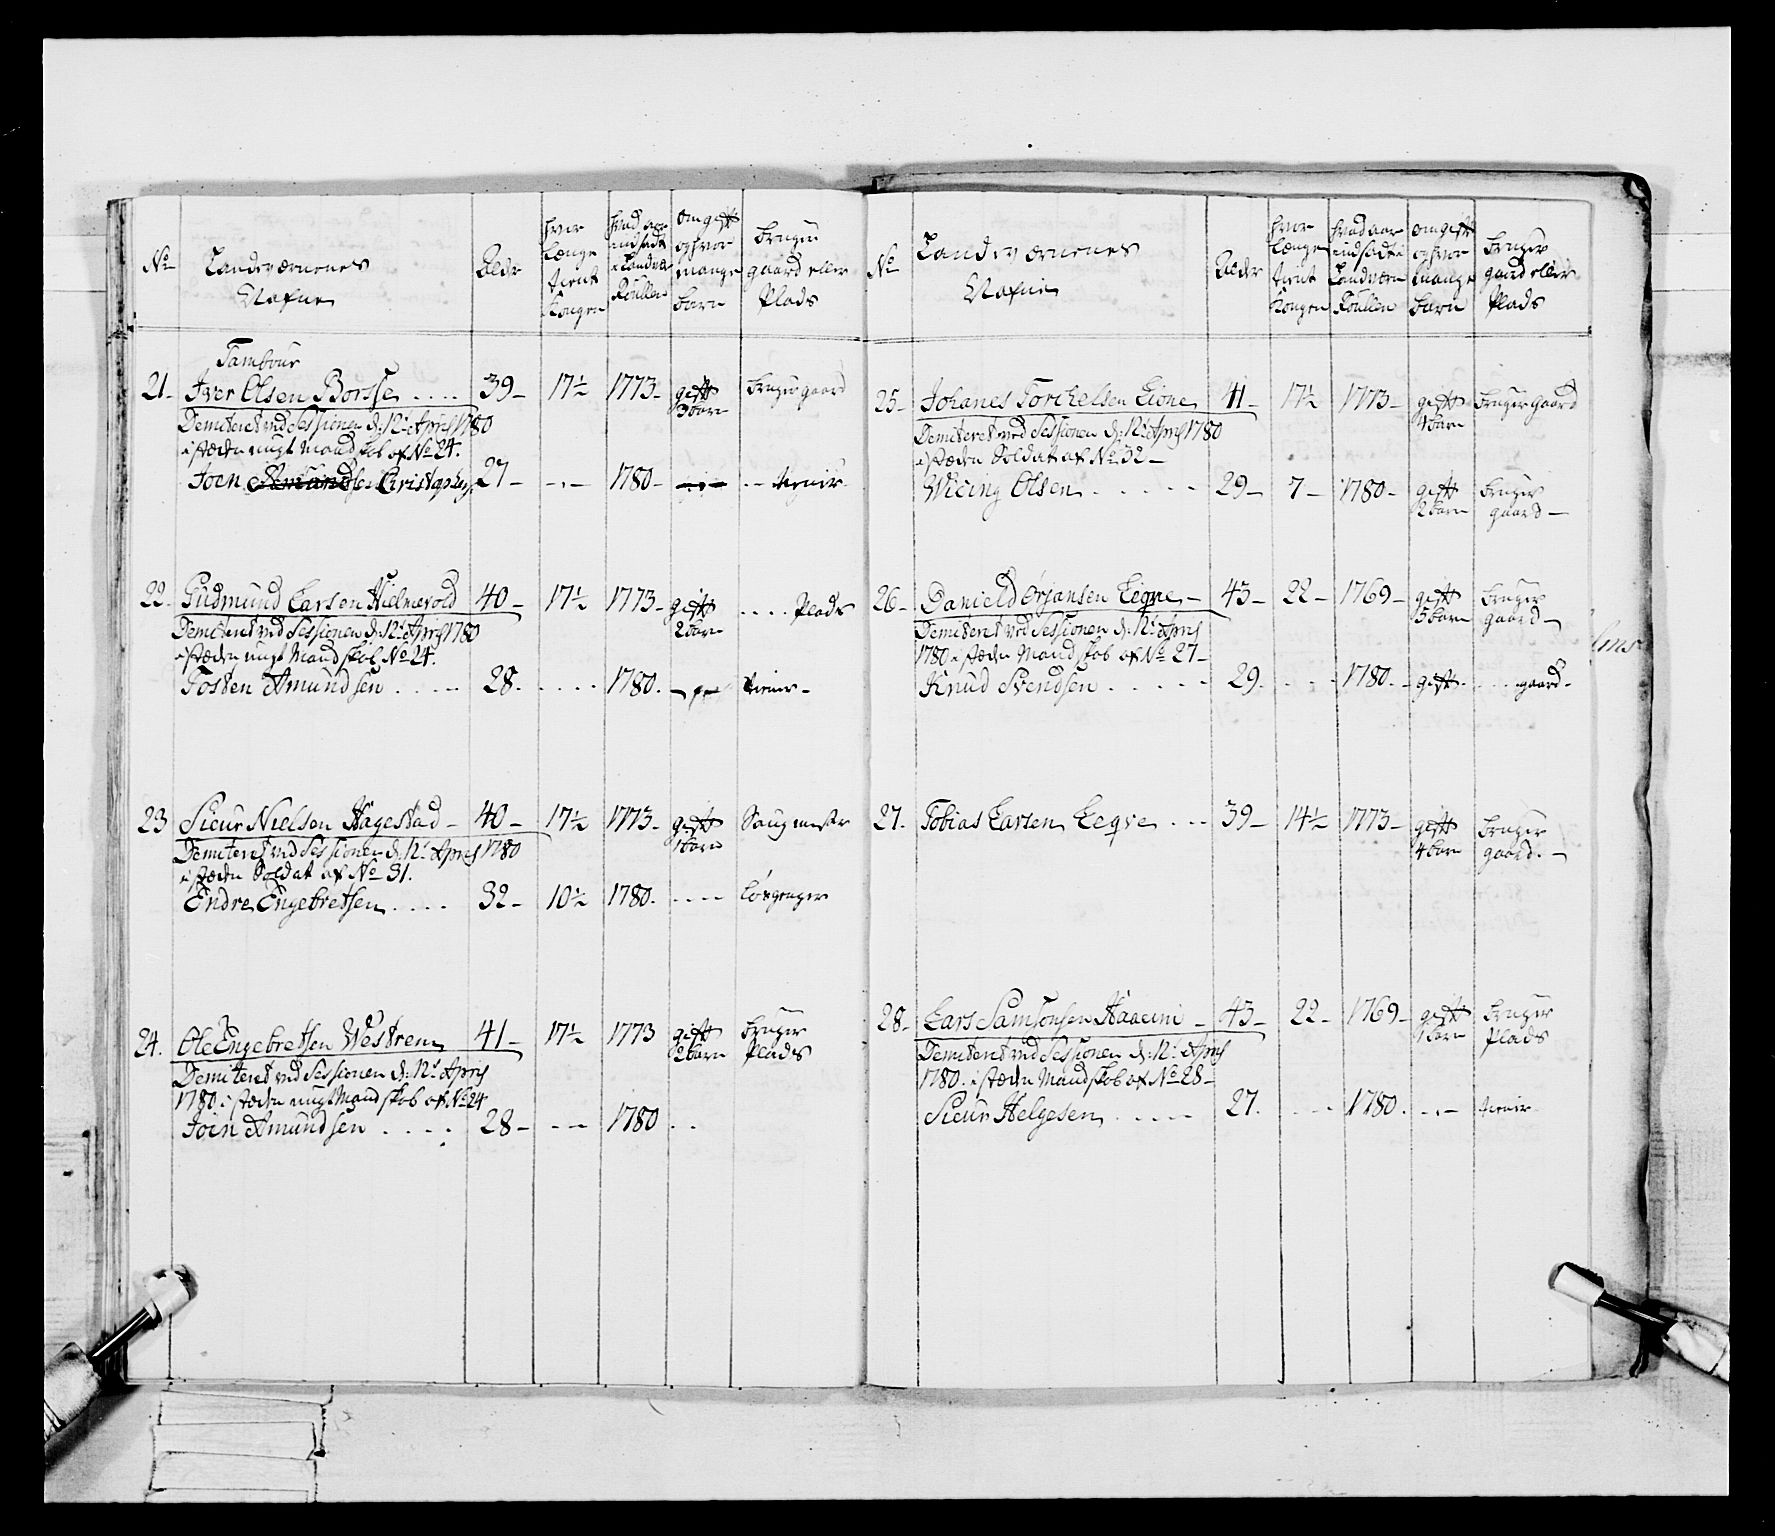 No
Landeværnenes
Nafne
Aldr
hvor
længe
tient
Kongen
hvad aar
indsadt
i Landvæ
Roullen
om gift
og hvor
mange
barn
bruger
gaard eller
Plads
Tambour
21- Iver Olsen Borsse .... 39- 17½ 1773- gift bruger gaard
3 barn
Demiteret ved Sessionen d: 12t April 1780
i stæden ungt Mandskab af No 24.
Joen Christophers 27- -.- 1780- -.- -- tiener
22- Gudmund Larsen Hielmevold 40- 17½ 1773- gift .... Plads
2 barn
Demiteret ved Sessionen d: 12t April 1780
i stæden ungt Mandskab No 24.
Tosten Amundsen ..... 28. .... 1780. tiener-
23 Sieur Nielsen Hägestad- 40- 17½ 1773- gift Saugmester
1 barn
Demiteret ved Sessionen d: 12t April 1780
i stæden Soldat af No 31.
Endre Engebretsen .... 32- 10½ 1780. ---- løsgenger
24. Ole Engebretsen Westrem 41- 17½ 1773 gift bruger
2 barn Plads
Demiteret ved Sessionen d: 12t April
1780 i stæden ungt Mandskab af No 24
Joen Amundsen .... 28- --- 1780 ..
No
Landeværnenes
Nafne
Aldr
hvor
længe
tient
Kongen
hvad aar
indsadt i
Landværn
Roullen
om gift
og hvor
mange
barn
bruger
gaard eller
Plads
25- Johanes Torchelsen Lione 41- 17½ 1773- gift bruger Gaard
4 barn
Demiteret ved Sessionen d: 12t April 1780
i stæden Soldat af No 32-
Wicing Olsen ..... 29- 7- 1780- gift bruger
2 barn gaard-
26- Danield Ørjansen Leqve- 43- 22- 1769- gift bruger
5 barn gaard-
Demiteret ved Sessionen d: 12t April
1780 i stæden Mandskab af No 27-
Knud Svendsen ..... 29. ... 1780.- gift- ....gaard-
27. Tobias Larsen Leqve ... 39- 14½ 1773- gift bruger
4 barn gaard.-
28- Lars Samsonsen - 43- 22- 1769- gift bruger
1 barn Plads
Demiteret ved Sessionen d: 12t April
1780. i stæden Mandskab af No 28-
Sieur Helgesen ..... 27. ... 1780. -.- tiener